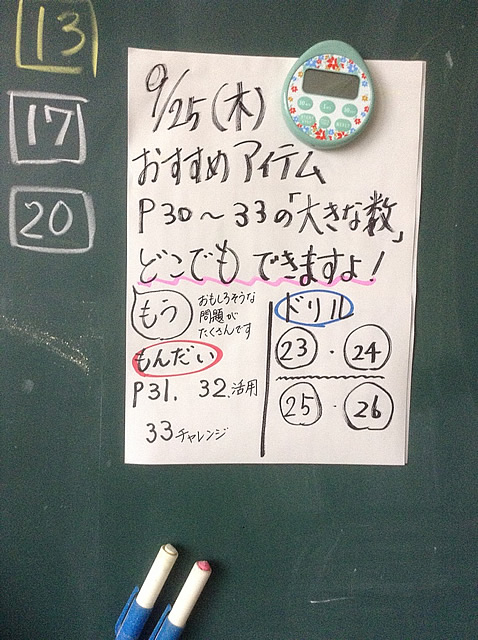 13
17
20
9/25(木)
おすすめアイテム
P30～33の「大きな数」
どこでもできますよ!
もう
おもしろそうな
問題が
たくさんです
もんだい
P31. 32.活用
33チャレンジ
ドリル
23・24
25・26